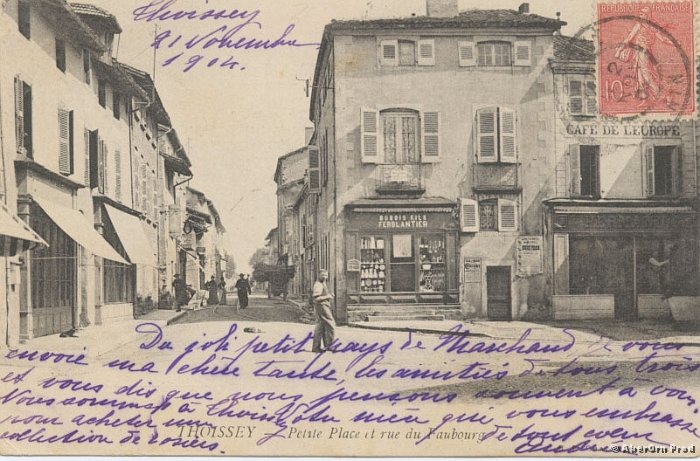 Thoissey
21 Novembre
1904.
RÉPUBLIQUE FRANÇAISE
10
CAFÉ DE L'EUROPE
DUBOIS FILS
FERBLANTIER
Du joli petit pays de Marchand je vous
envoie ma chère tante, les amitiés de tous trois
et vous dis que nous pensons souvent à vous
Nous sommes à Thoissey mère qui vous embrasse
pour acheter une de tout cœur
collection de rosiers.
THOISSEY Petite Place et rue du Faubourg